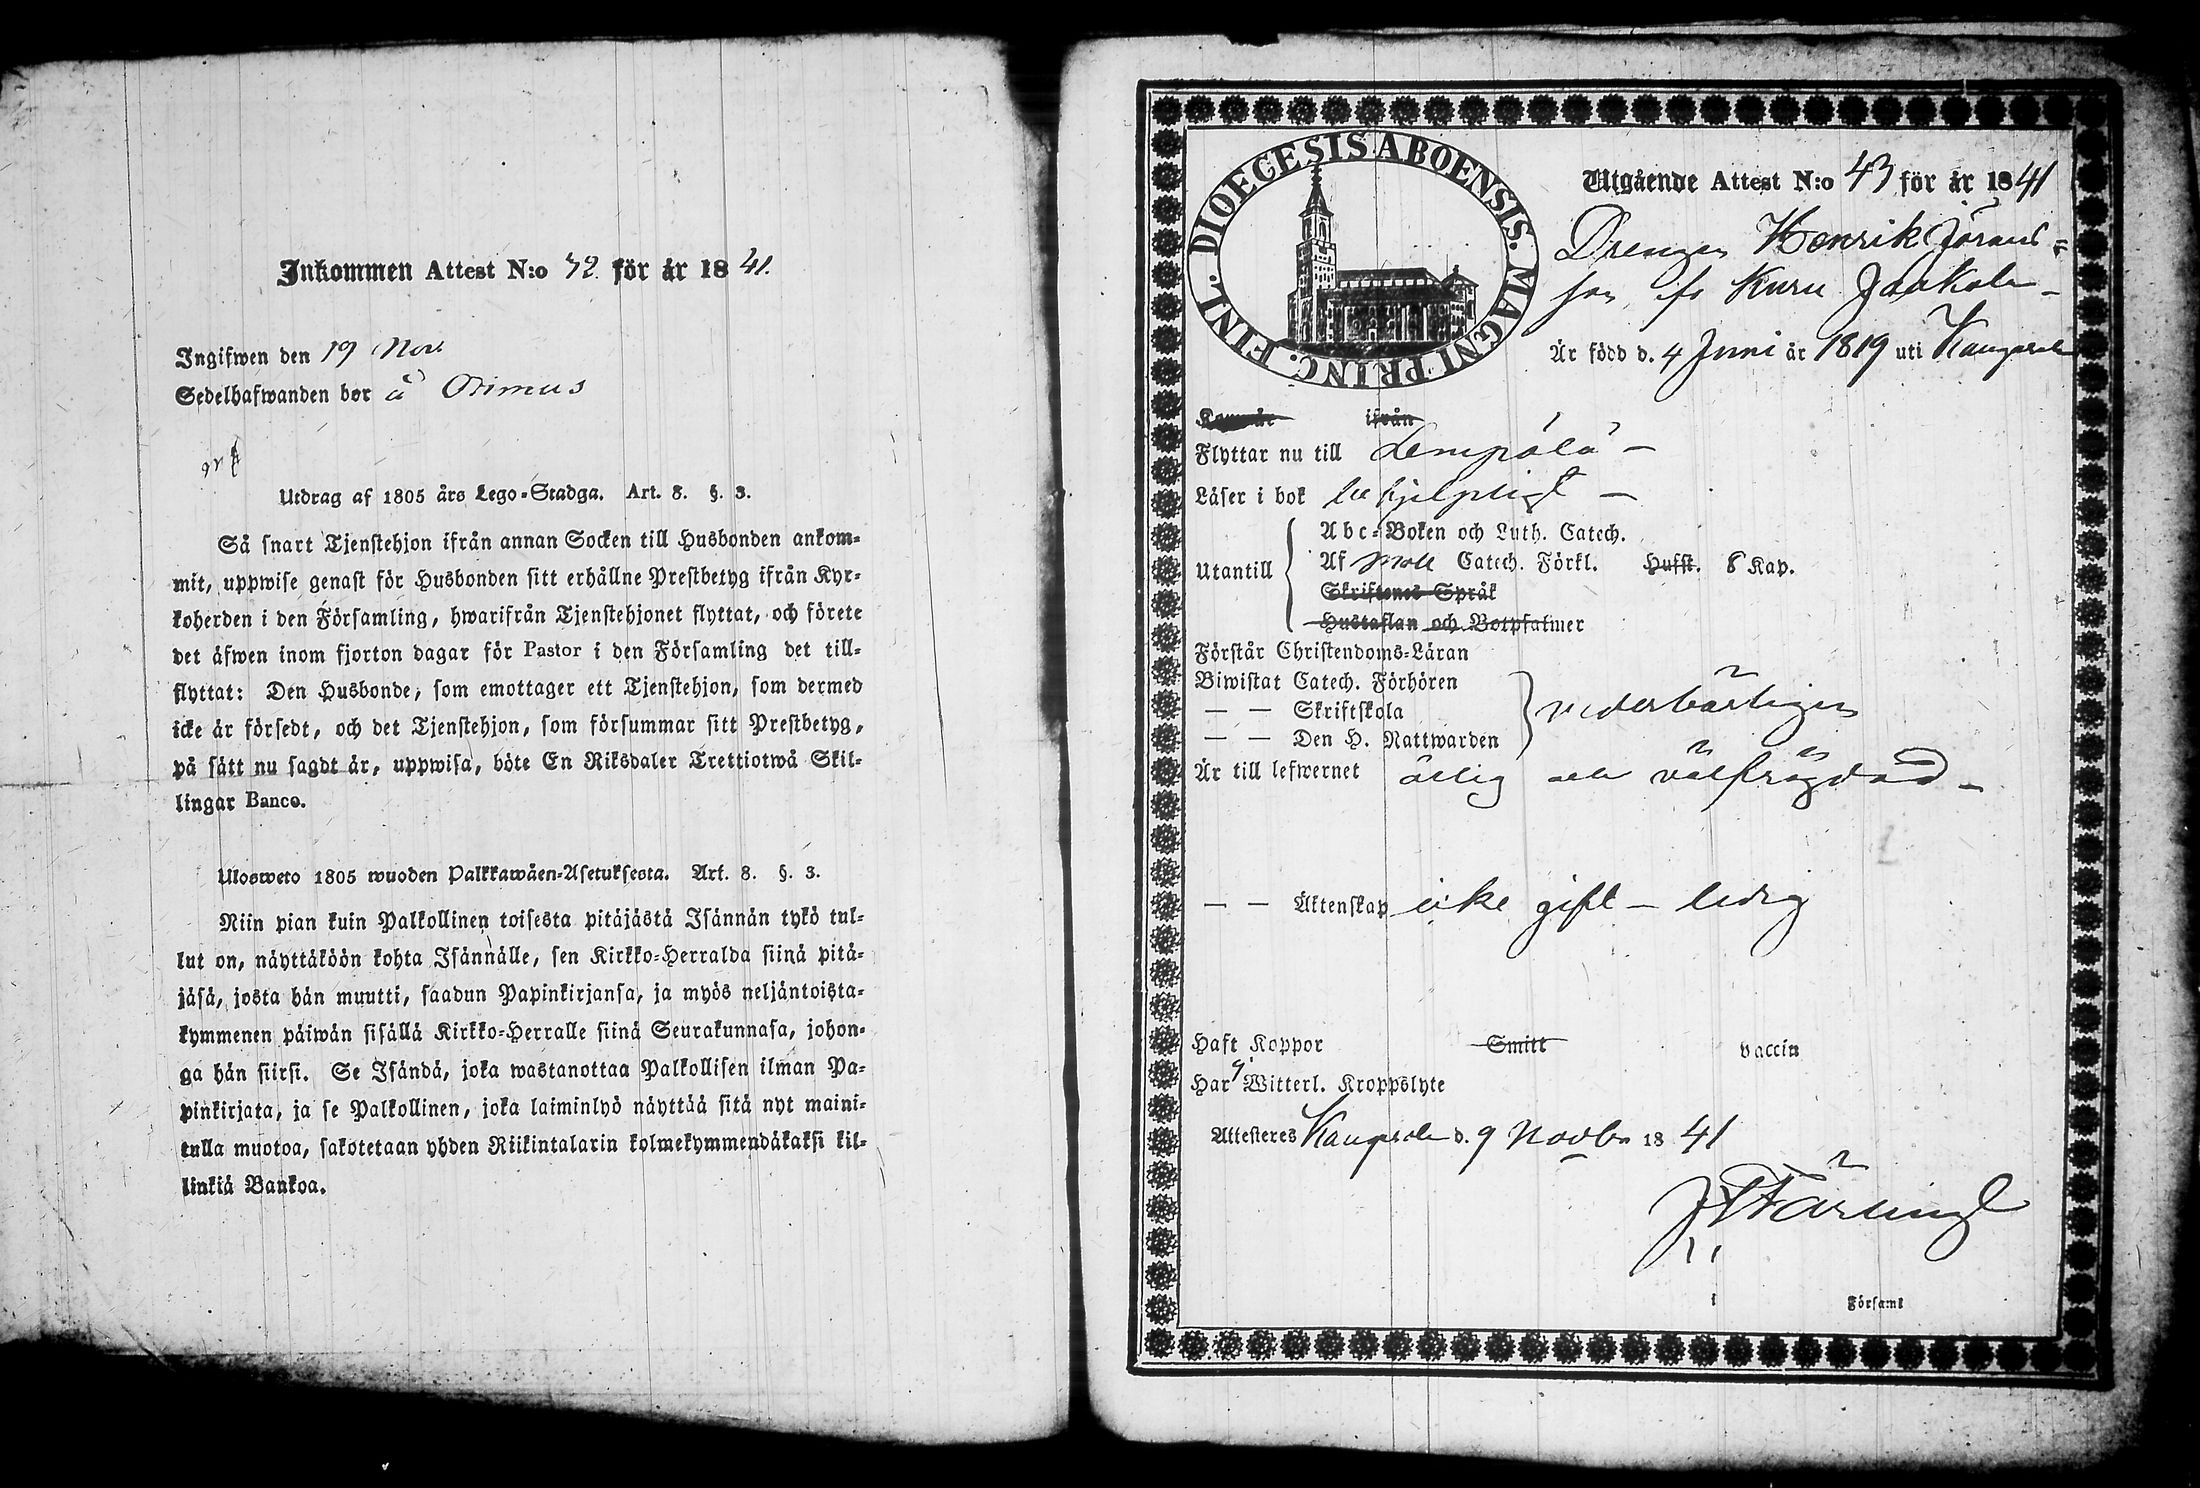 Inkommen Attest N:o 42 för år 1841.
Ingifwen den 19 Nov
Sedelhafwanden bor å
Utdrag af 1805 års Lego-Stadga. Art. 8. §. 3.
Så snart Tjenstehjon ifrån annan Socken till Husbonden ankom-
mit, uppwise genast för Husbonden sitt erhållne Prestbetyg ifrån Kyr-
koherden i den Församling, hwarifrån Tjenstehjonet flyttat, och förete
det äfwen inom fjorton dagar för Pastor i den Församling det till-
flyttat: Den Husbonde, som emottager ett Tjenstehjon, som dermed
icke är försedt, och det Tjenstehjon, som försummar sitt Prestbetyg,
på sätt nu sagdt är, uppwisa, böte En Riksdaler Trettiotwå Skil-
lingar Banco.
Ulosweto 1805 wuoden Palkkawäen-Asetuksesta. Art. 8. §. 3.
Niin pian kuin Palkollinen toisesta pitäjästä Isännän tykö tul-
lut on, näyttäköön kohta Isännälle, sen Kirkko-Herralda siinä pitä-
jäsä, josta hän muutti, saadun Papinkirjansa, ja myös neljäntoista-
kymmenen päiwän sisällä Kirkko-Herralle siinä Seurakunnasa, johon-
ga hän siirsi. Se Isändä, joka wastanottaa Palkollisen ilman Pa-
pinkirjata, ja se Palkollinen, joka laiminlyö näyttää sitä nyt maini-
tulla muotoa, sakotetaan yhden Riikintalarin kolmekymmendäkaksi kil-
linkiä Bankoa.
DIOECESIS ABOENSIS. MAGNI PRINC. FINL.
Utgående Attest N:o 43 för år 1841
Drengen Henrik Jörans=
son ifr Kuru Jaakola
Är född d. 4 Juni år 1819 uti Kangasala
Kom år ifrån
Flyttar nu till Lempälä
Läser i bok behjelpligt
Utantill
Abc-Boken och Luth. Catech.
Af Catech. Förkl. Hufst. 8 Kap.
Skriftenes Språk
Hustaflan och Botpsalmer
Förstår Christendoms-Läran
Biwistat Catech. Förhören
— — Skriftskola
— — Den H. Nattwarden
vederbörligen
Är till lefwernet ärlig och välfrägdad
— — Äktenskap icke gift – ledig
Haft Koppor Smitt vaccin
Har ej Witterl. Kroppslyte
Attesteres Kangasala d. 9 Novbr 1841
i Församl